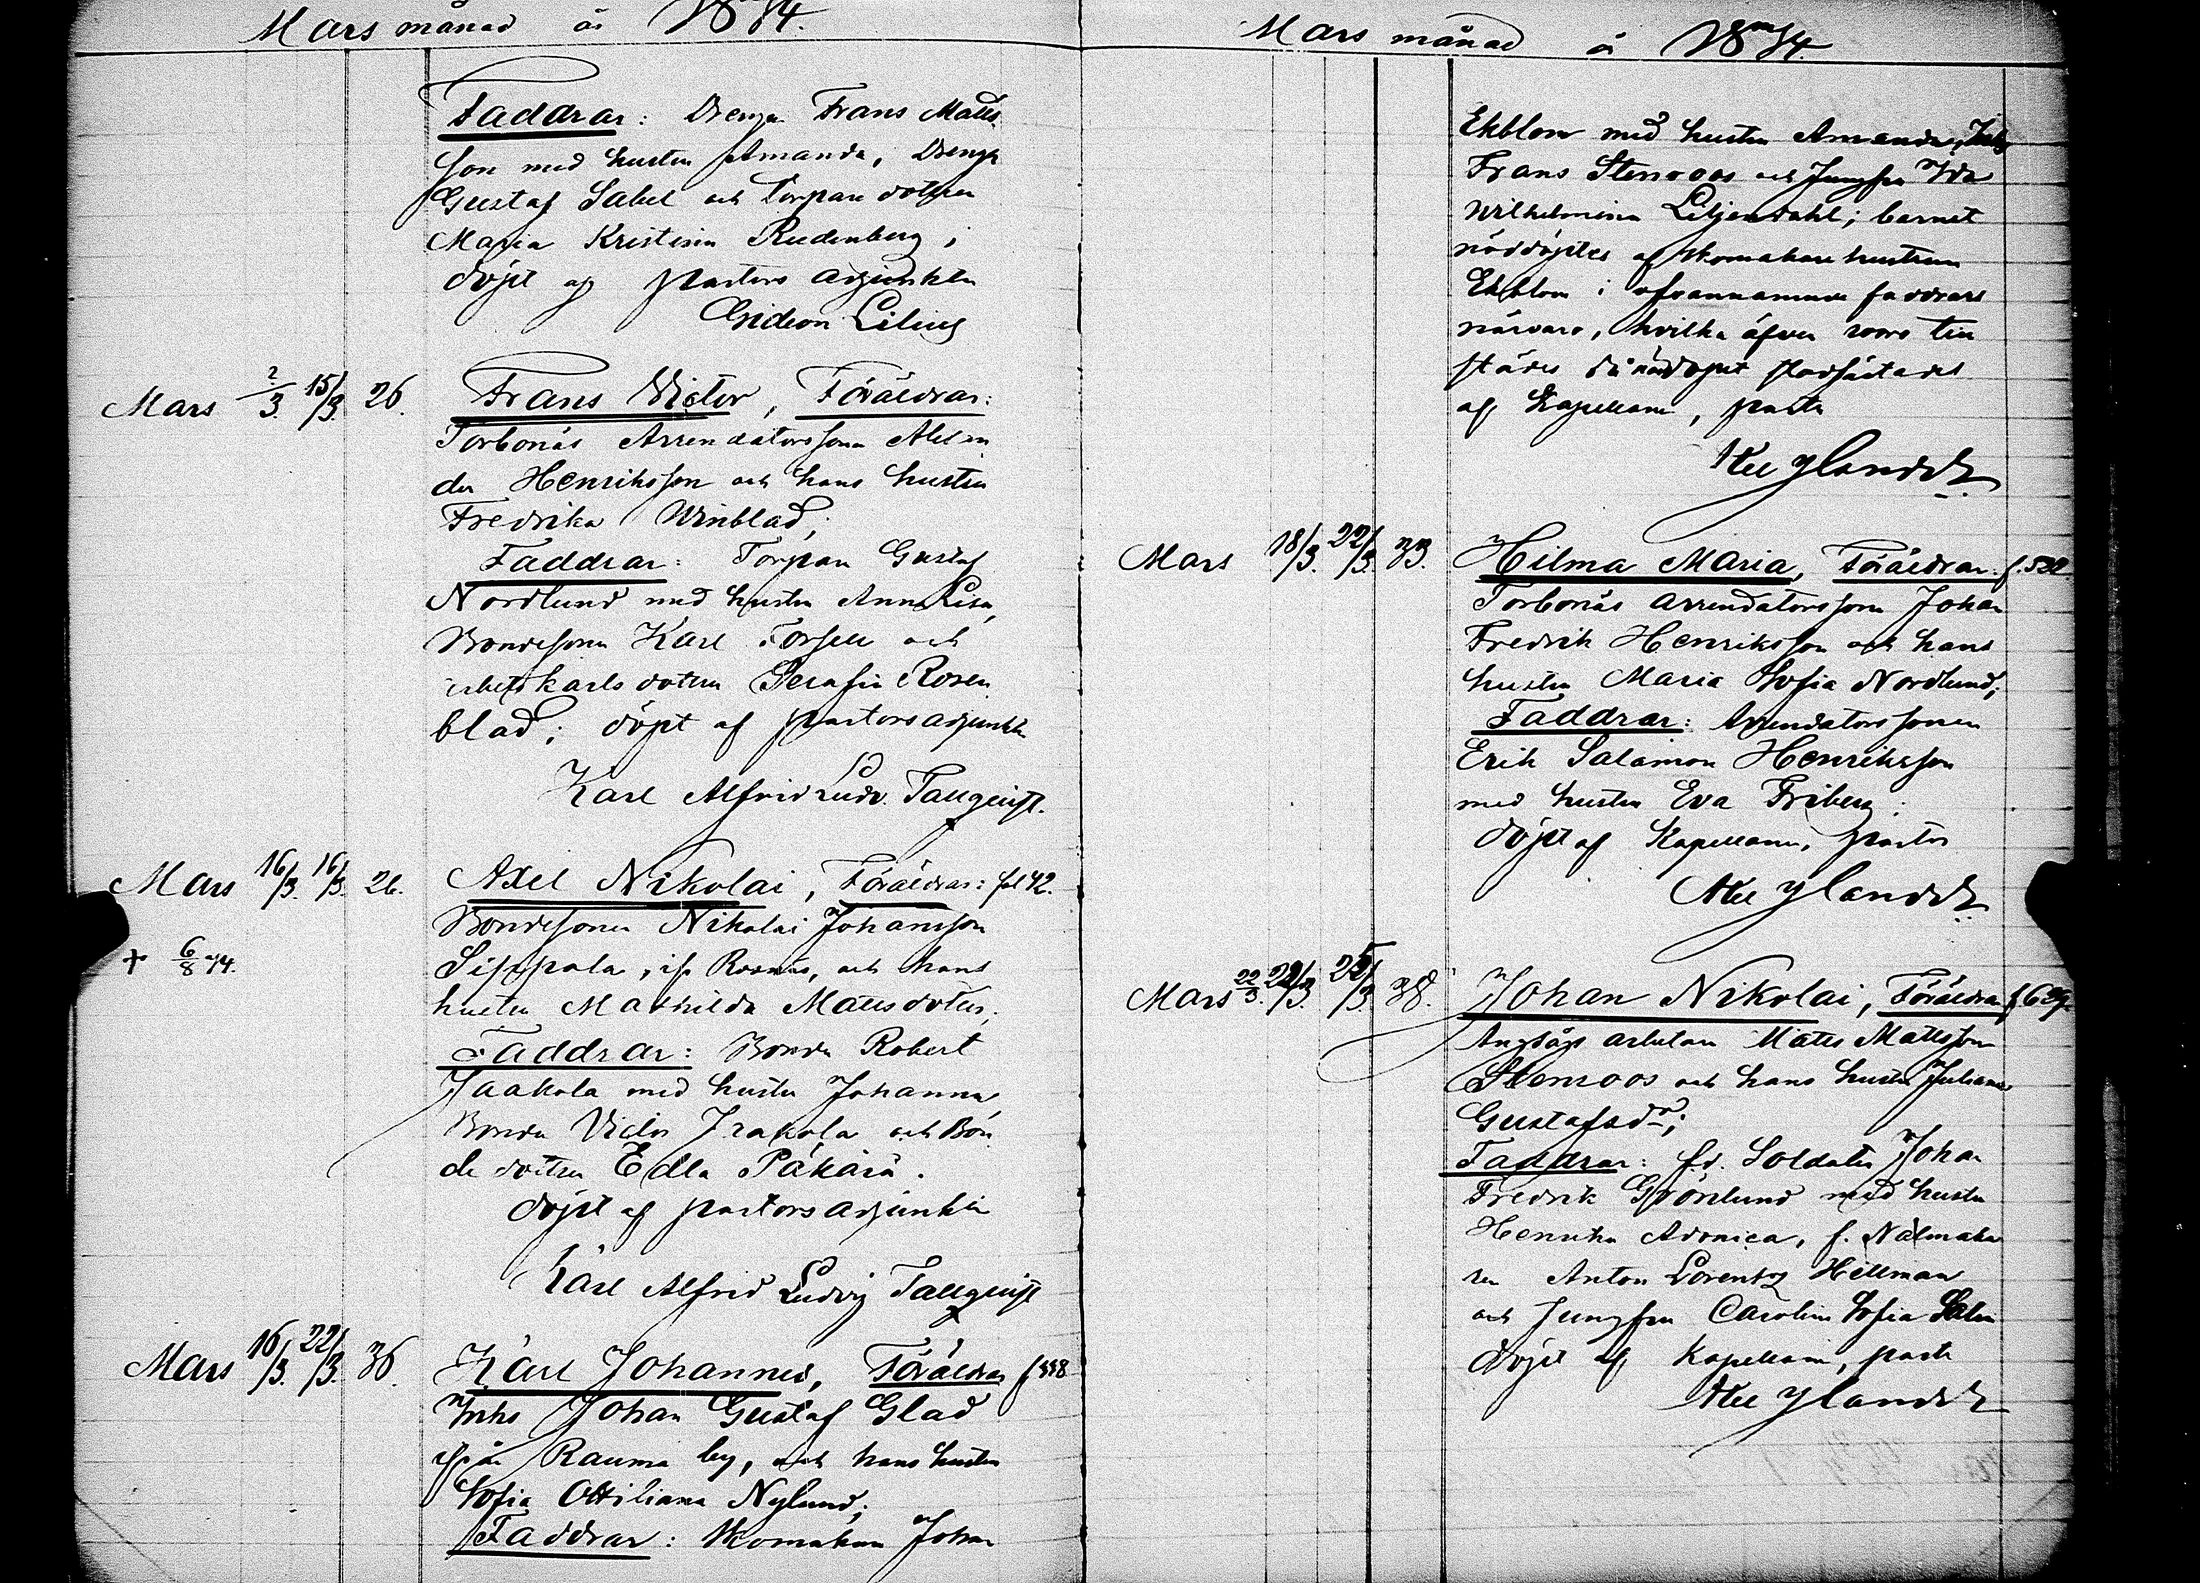 Mars månad år 1874.
Faddrar: Dreng. Frans Matts
son med hustru Amanda, Dreng.
Gustaf Sabel och Torpare dottren
Maria Kristina Rudenberg;
döpt af pastors adjunkten
Gideon Lilius
Mars 2/3 15/3 26. Frans Victor, Föräldrar:
Torbonäs Arrendatorssonen Alexan
der Henriksson och hans hustru
Fredrika Winblad;
Faddrar: Torpare Gustaf
Nordlund med hustru Anna Lisa,
Bondesonen Karl Forsell och
arbetskarls dottren Serafia Rosen
blad; döpt af pastorsadjunkten
Karl Alfrid Ludv. Tallqvist.
Mars 16/3 16/3. 26. Axel Nikolai, Föräldrar: fol 42.
Bondesonen Nikolai Johansson
+ 6/8 74. Sippola, och hans
hustru Mathilda Mattsdotter;
Faddrar: Bonden Robert
Jaakola med hustru Johanna,
Bonden Victor Jaakola och Bon
de dottren Edla Päkärä.
döpt af pastorsadjunkten
Karl Alfrid Ludvig Tallqvist
Mars 16/3. 22/3. 36. Karl Johannes, Föräldrar f 338
Inhs Johan Gustaf Glad
från Rauma by, och hans hustru
Sofia Ottiliana Nylund;
Faddrar: Skomakare Johan
Mars månad år 1874.
Ekblom med hustru Amanda,
Frans Stenroos och Jungfru Ida
Wilhelmina Liljendahl; barnet
nöddöptes af skomakare hustrun
Ekblom i ofvannämnde faddrars
närvaro, hvilka äfven voro till
städes då nöddopet stadfästades
af Kapellanen, pastor
Nylander
Mars 18/3. 22/3. 33. Hilma Maria, Föräldrar: f. 522
Torbonäs arrendatorsson Johan
Fredrik Henriksson och hans
hustru Maria Sofia Nordlund;
Faddrar: Arrendatorssonen
Erik Salamon Henriksson
med hustru Eva Friberg:
döpt af Kapellanen, pastor
Nylander
Mars 22/3. 22/3 25/3. 38. Johan Nikolai, Föräldrar f. 629.
Ångsågs arbetaren Matts Mattsson
Stenroos och hans hustru Juliana
Gustafsdr;
Faddrar: f.d. Soldaten Johan
Fredrik Grönlund med hustru
Henrika Adonica, f. Nålmaka
ren Anton Lorentz Hellman
och Jungfru Carolina Sofia
döpt af Kapellanen, pastor
Nylander